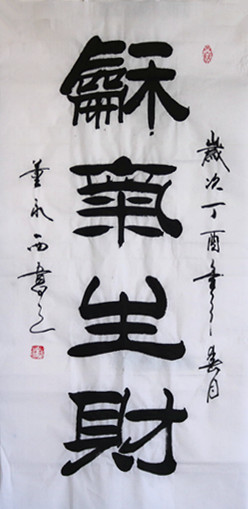 歲次丁酉年之春月
龢氣生財
董永西書之